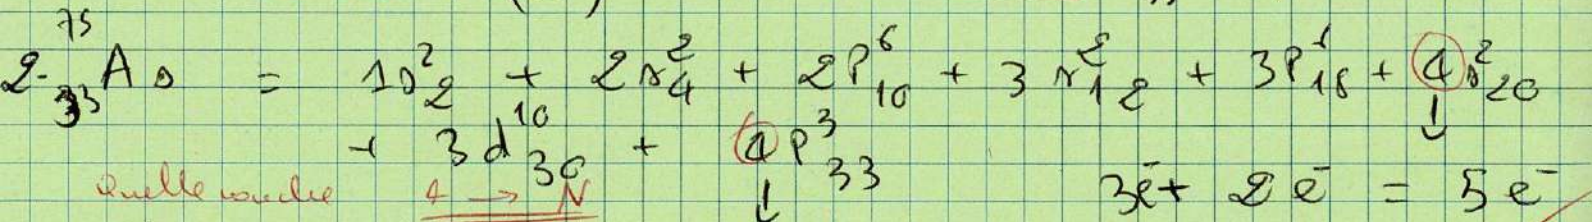 2- ⁷⁵₃₃As = 1s²₂ + 2s²₄ + 2P⁶₁₀ + 3s²₁₂ + 3P⁶₁₈ + 4s²₂₀
+ 3d¹⁰₃₀ + 4P³₃₃ 3e⁻ + 2e⁻ = 5e⁻
Quelle couche 4 → N